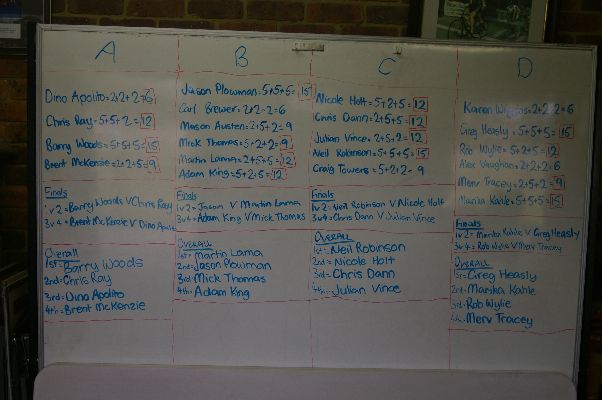 A
Dino Apolito = 2+2+2=6
Chris Ray = 5+5+2= 12
Barry Woods = 5+5+5= 15
Brent McKenzie = 2+2+5= 9
Finals
1v2= Barry Woods V Chris Ray
3v4= Brent McKenzie V Dino Apolito
Overall
1st= Barry Woods
2nd= Chris Ray
3rd= Dino Apolito
4th= Brent McKenzie
B
Jason Plowman= 5+5+5= 15
Carl Brewer= 2+2+2=6
Mason Austen= 2+5+2= 9
Mick Thomas= 5+2+2= 9
Martin Lama= 2+5+5= 12
Adam King= 5+2+5= 12
Finals
1v2= Jason V Martin Lama
3v4= Adam King V Mick Thomas
OVERALL
1st= Martin Lama
2nd= Jason Plowman
3rd= Mick Thomas
4th= Adam King
C
Nicole Holt = 5+2+5= 12
Chris Dann= 2+5+5= 12
Julian Vince= 2+5+2= 12
Neil Robinson= 5+5+5= 15
Craig Towers= 5+2+2= 9
Finals
1v2= Neil Robinson V Nicole Holt
3v4= Chris Dann V Julian Vince
OVERALL
1st= Neil Robinson
2nd= Nicole Holt
3rd= Chris Dann
4th= Julian Vince
D
Karen = 2+2+2=6
Greg Heasly= 5+5+5= 15
Rob Wylie= 5+2+5= 12
Alex Vaughan= 2+2+2=6
Merv Tracey= 2+5+2= 9
Mariska Kahle= 5+5+5= 15
Finals
1v2= Mariska Kahle V Greg Heasly
3v4= Rob Wylie V Merv Tracey
OVERALL
1st= Greg Heasly
2nd= Mariska Kahle
3rd= Rob Wylie
4th= Merv Tracey